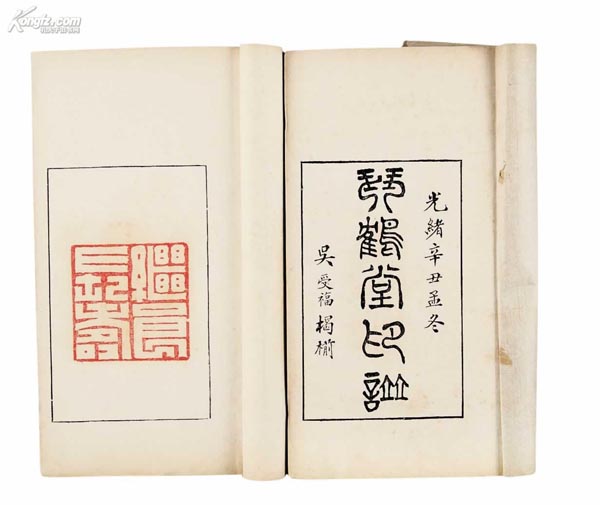 Kongfz.com
光緒辛丑孟冬
琴鶴堂印譜
吳受福